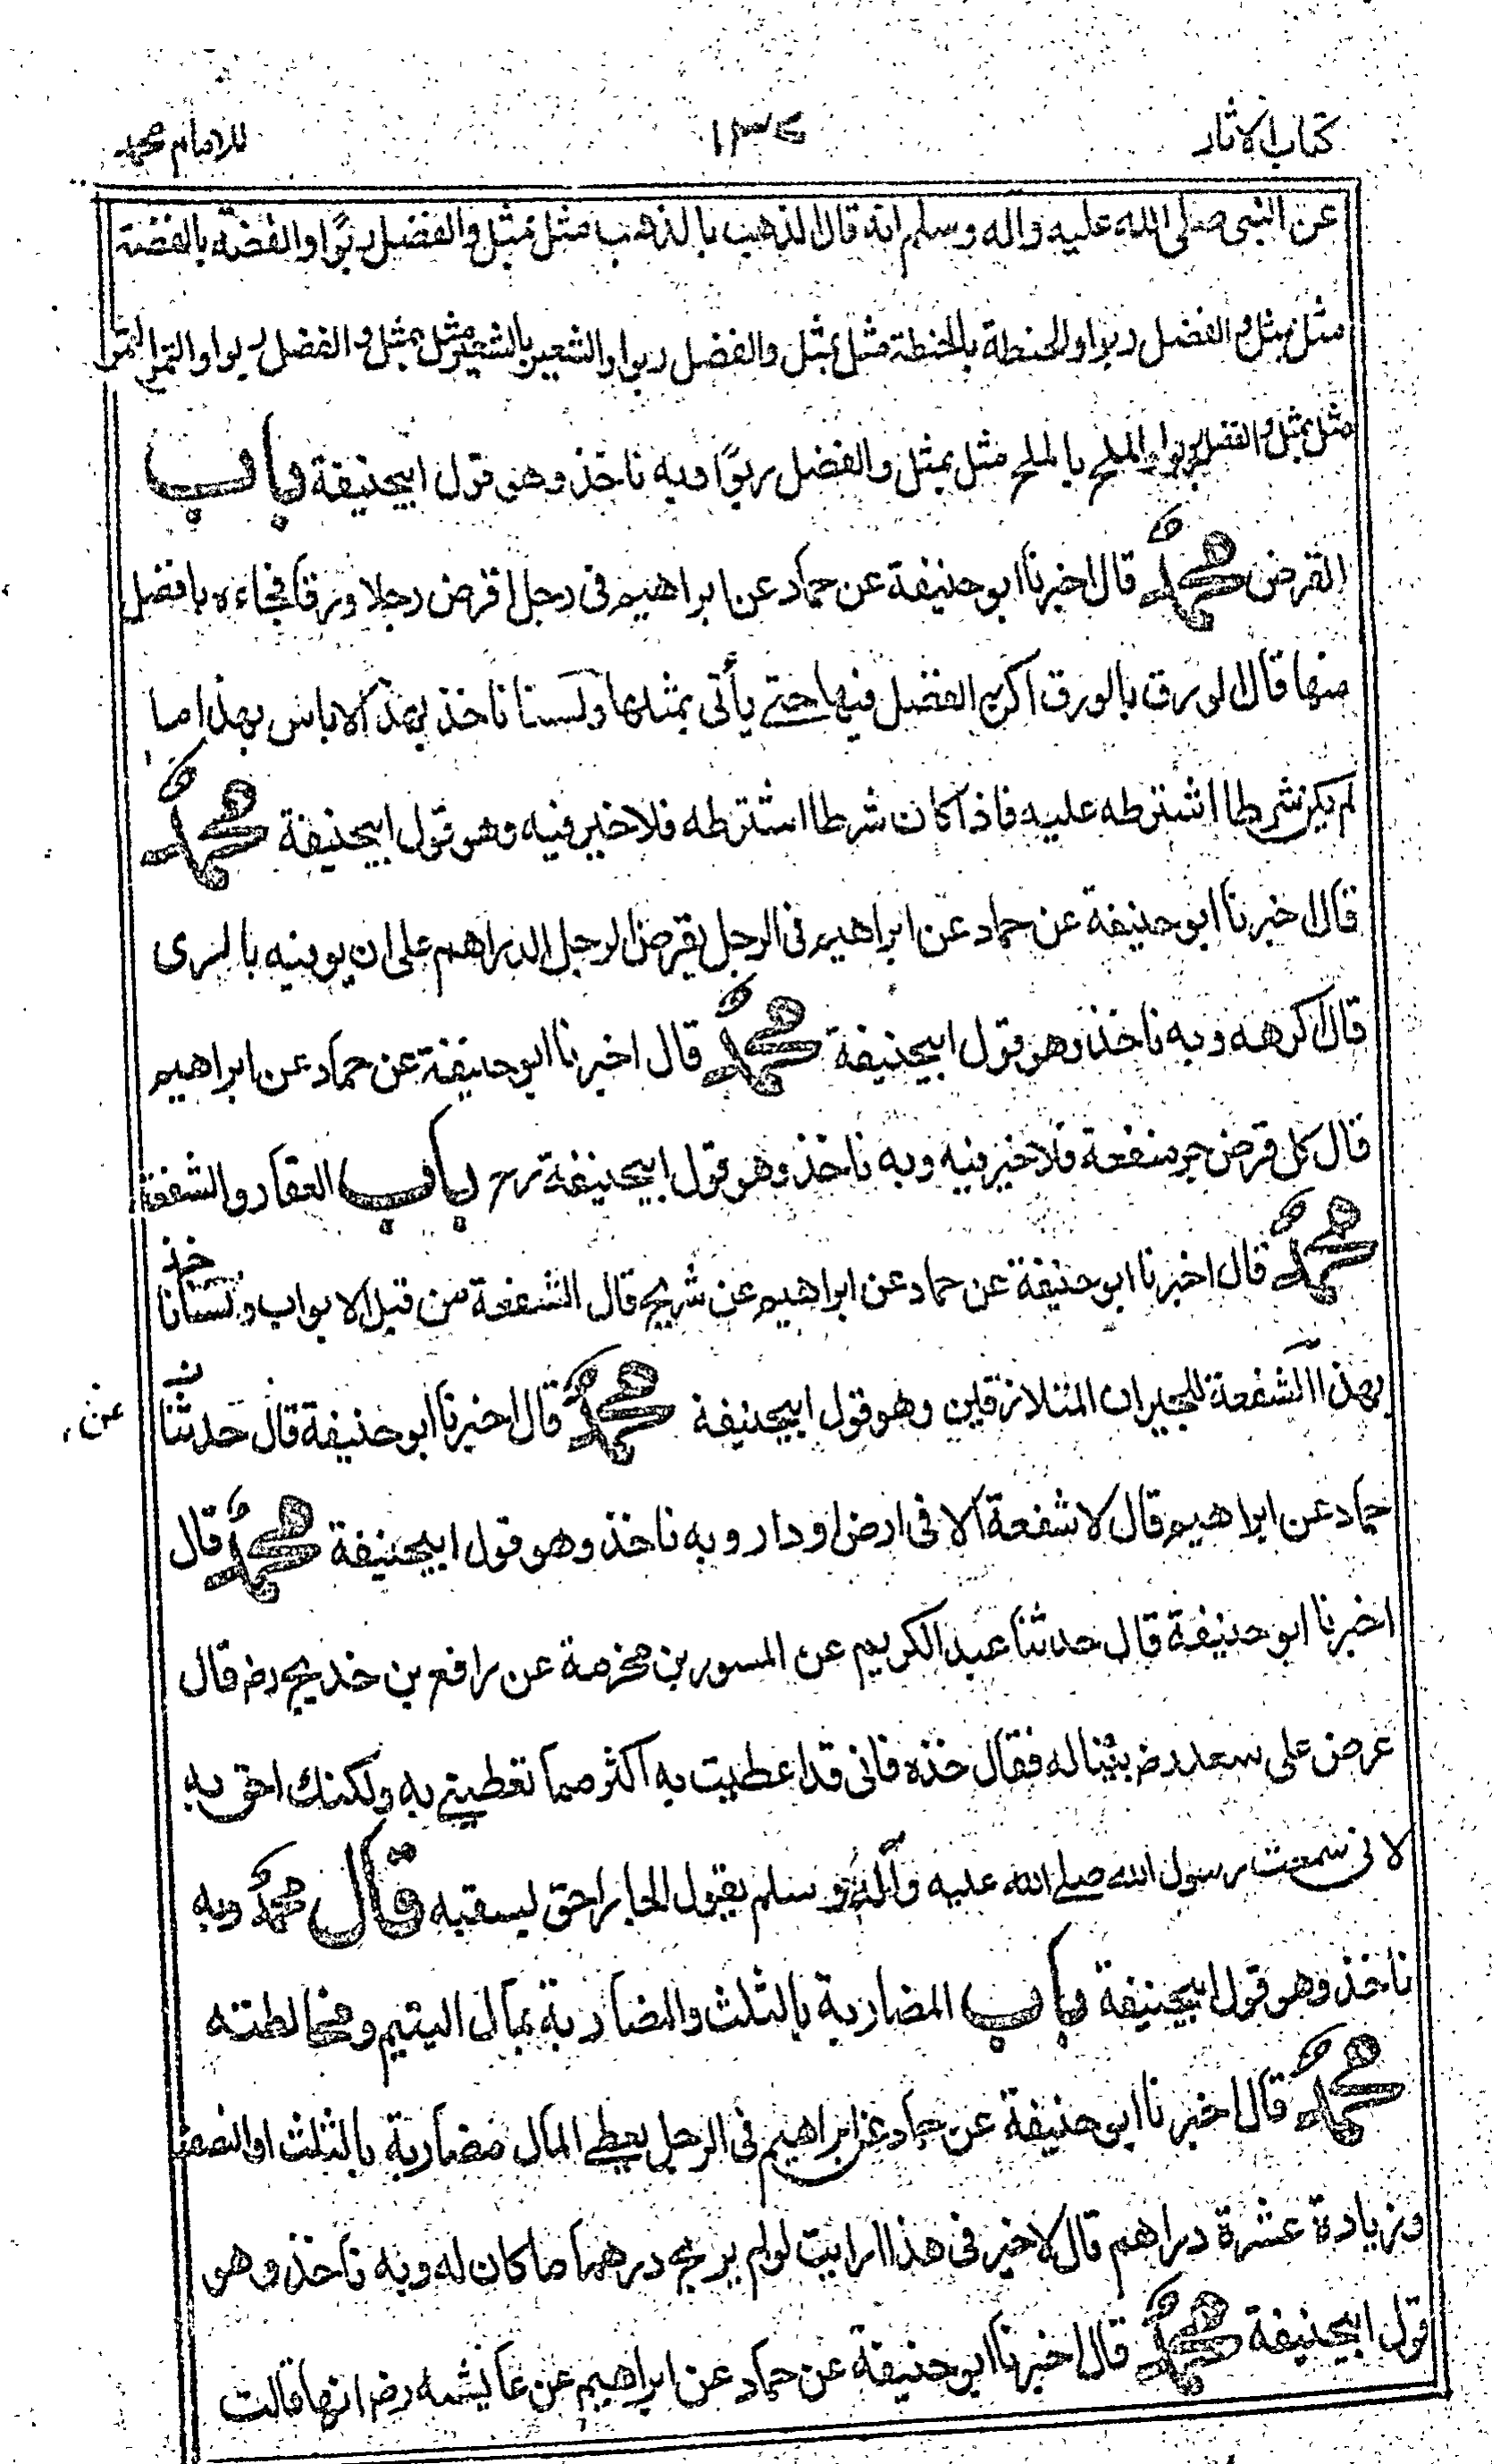 كتاب الاثار ١٣٤ للامام محمد
عن النبى صلى الله عليه واله وسلم انه قال الذهب بالذهب مثل بمثل والفضل ربوًا والفضة بالفضة
مثل بمثل والفضل ربوا والحنطة بالحنطة مثل بمثل والفضل ربوا والشعير بالشعير مثل بمثل والفضل ربوا والتمر بالتمر
مثل بمثل والفضل ربوا والملح بالملح مثل بمثل والفضل ربوًا وبه ناخذ وهو قول ابيحنيفة باب
القرض محمدٌ قال اخبرنا ابو حنيفة عن حماد عن ابراهيم فى رجل اقرض رجلا ورقا فجاءه بافضل
منها قال الورق بالورق اكره الفضل فيها حتے يأتى بمثلها ولسنا ناخذ بهذا لا باس بهذا ما
لم يكن شرطا اشترطه عليه فاذا كان شرطا اشترطه فلا خير فيه وهو قول ابيحنيفة محمدٌ
قال اخبرنا ابو حنيفة عن حماد عن ابراهيم فى الرجل يقرض الرجل الدراهم على ان يوفيه بالرى
قال اكرهه وبه ناخذ وهو قول ابيحنيفة محمدٌ قال اخبرنا ابو حنيفة عن حماد عن ابراهيم
قال كل قرض جر منفعة فلا خير فيه وبه ناخذ وهو قول ابيحنيفة رح باب العقار والشفعة
محمدٌ قال اخبرنا ابو حنيفة عن حماد عن ابراهيم عن شريح قال الشفعة من قبل الابواب ولسنا ناخذ
بهذا الشفعة للجيران المتلازقين وهو قول ابيحنيفة محمدٌ قال اخبرنا ابو حنيفة قال حدثنا
عن
حماد عن ابراهيم قال لا شفعة الا فى ارض او دار وبه ناخذ وهو قول ابيحنيفة محمدٌ قال
اخبرنا ابو حنيفة قال حدثنا عبد الكريم عن المسور بن مخرمة عن رافع بن خديج رض قال
عرض على سعد رض بيتا له فقال خذه فانى قد اعطيت به اكثر مما تعطينے به ولكنك احق به
لانى سمعت رسول الله صلے الله عليه وآله وسلم يقول الجار احق بسقبه قال محمدٌ وبه
ناخذ وهو قول ابيحنيفة باب المضاربة بالثلث والمضاربة بمال اليتيم ومخالطته
محمدٌ قال اخبرنا ابو حنيفة عن حماد عن ابراهيم فى الرجل يعطے المال مضاربة بالثلث او النصف
وزيادة عشرة دراهم قال لا خير فى هذا ارايت لو لم يربح درهما ما كان له وبه ناخذ وهو
قول ابيحنيفة محمدٌ قال اخبرنا ابو حنيفة عن حماد عن ابراهيم عن عايشه رض انها قالت